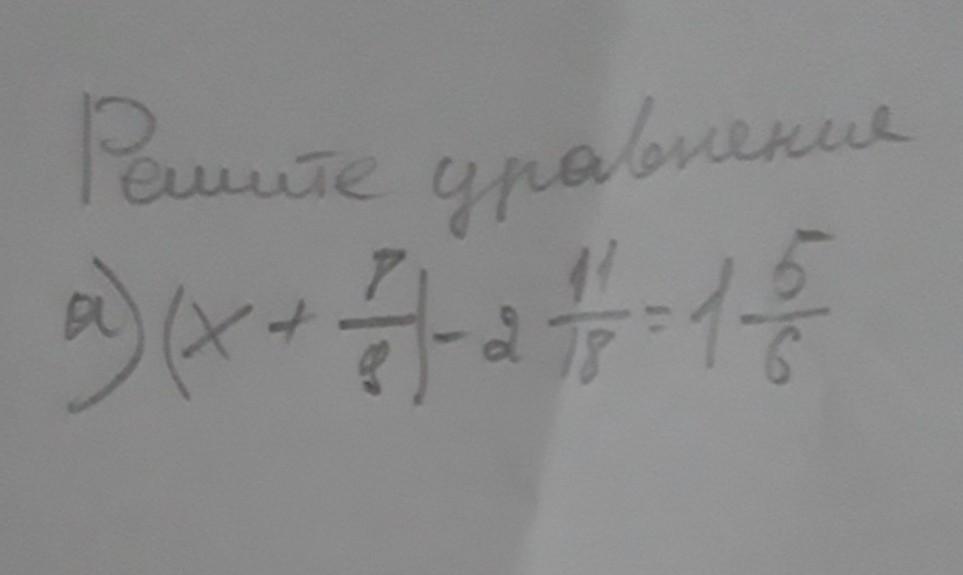 Решите уравнение
а) (x + 7/9) - 2 11/18 = 1 5/6